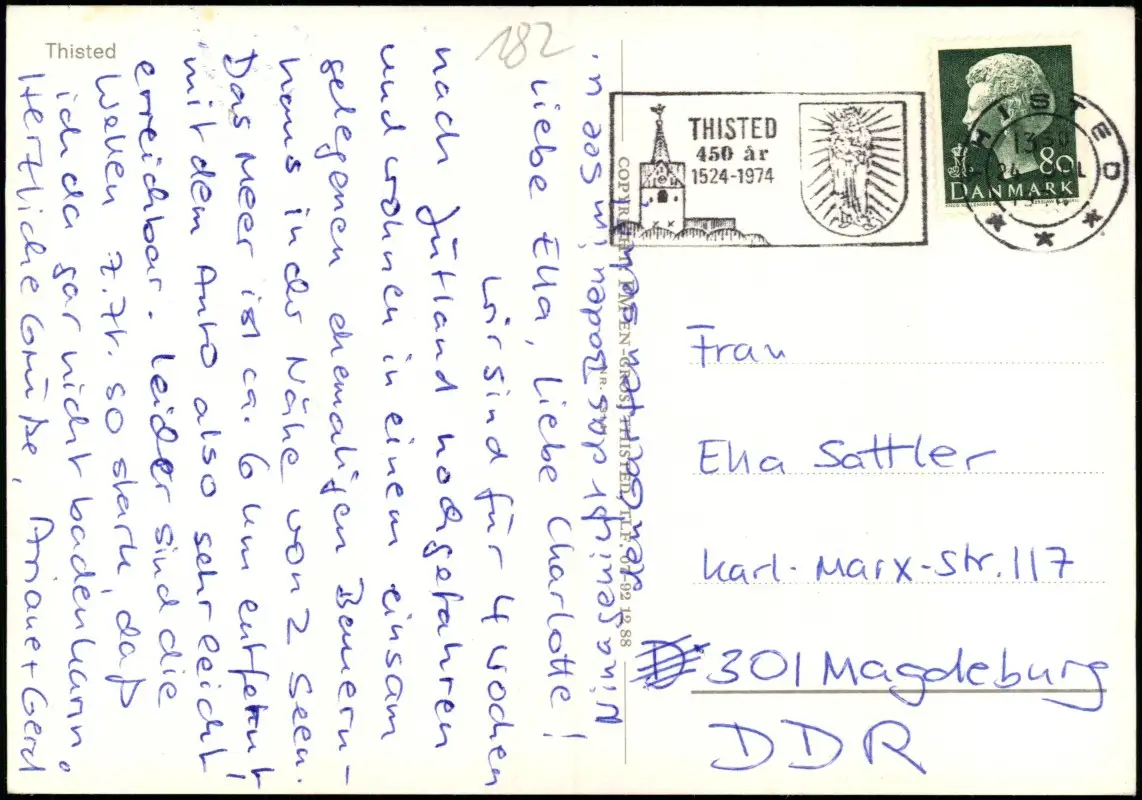 Thisted
182
Liebe Ella, liebe Charlotte!
Wir sind für 4 Wochen
nach Jütland hochgefahren
und wohnen in einem einsam
gelegenen ehemaligen Bauern-
haus in der Nähe von 2 Seen.
Das Meer ist ca. 6 km entfernt,
mit dem Auto also sehr leicht
erreichbar. Leider sind die
Wellen z.Zt. so stark, daß
ich da gar nicht baden kann.
Herzliche Grüße, Ariane + Gerd
Nina genießt das Baden im See u.
den Garten sehr
COPYRIGHT: THISTED, TLF. 07-92 12 88
THISTED
450 år
1524-1974
80
DANMARK
THISTED
24
Frau
Ella Sattler
Karl-Marx-Str. 117
301 Magdeburg
DDR